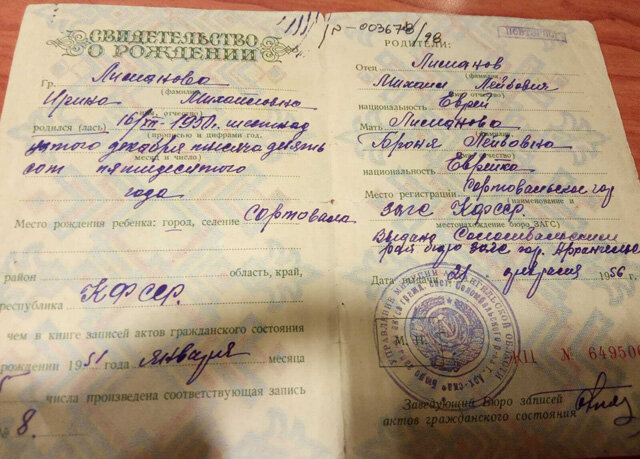 СВИДЕТЕЛЬСТВО
О РОЖДЕНИИ
Гр. Лисманова
(фамилия)
Ирина Михайловна
родился (лась) 16/XII-1950. шестнад
цатого декабря тысяча девять
(прописью и цифрами год,
месяц и число)
сот пятидесятого
года
Место рождения ребенка: город, селение Сортовала
район область, край,
республика КФССР.
чем в книге записей актов гражданского состояния
рождении 1951 года января месяца
числа произведена соответствующая запись
№ 8.
р-003678/98
ПОВТОРНОЕ
РОДИТЕЛИ:
Отец Лисманов
(фамилия
Михаил Лейбович
национальность Еврей
Мать Лисманова
(фамилия
Броня Лейбовна
национальность Еврейка
Место регистрации Сортовальское гор
(наименование и
загс КФССР.
местонахождение бюро ЗАГС)
Выдано Соломбальским
рай бюро загс гор. Архангельс
Дата выдачи 21 февраля 1956
М. П.
№ 64950
Заведующий Бюро записей
актов гражданского состояния